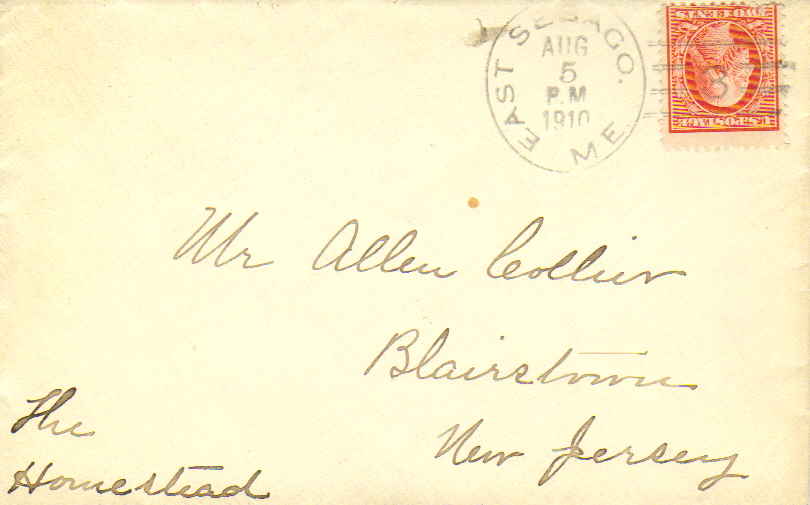 EAST SEBAGO.
ME
AUG
5
P.M
1910
TWO CENTS
U.S. POSTAGE
Mr Allen Collier
Blairstown
New Jersey
The
Homestead